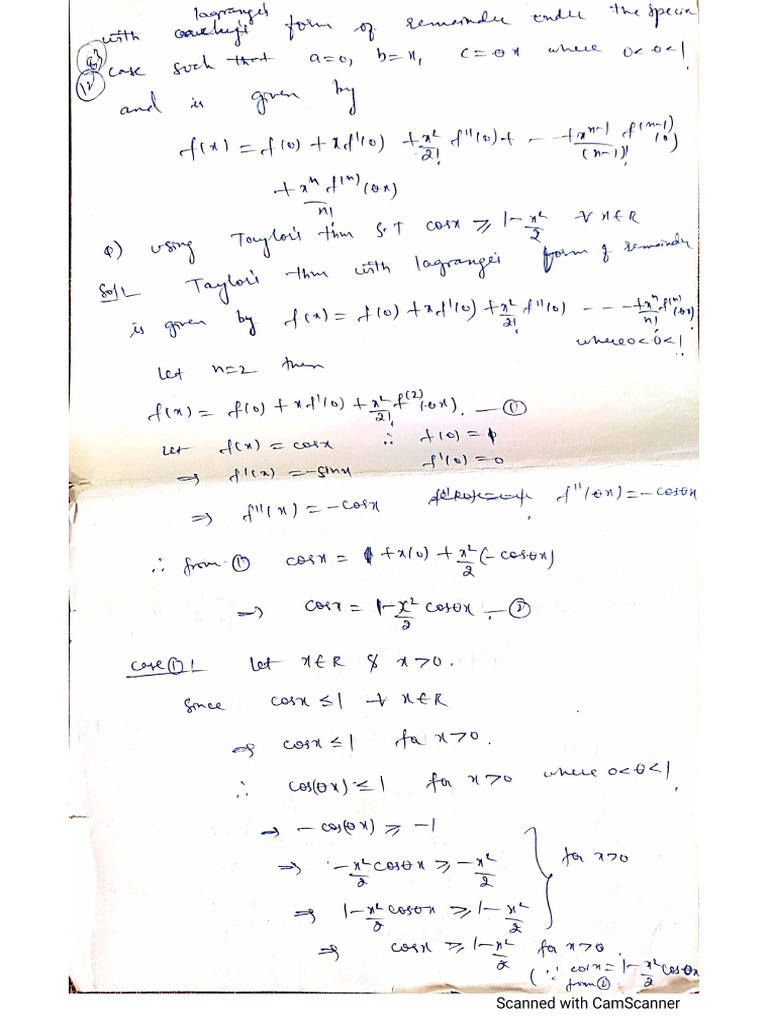 lagranges
with cauchy's form of remainder under the special
case such that a=0, b=x, c=θx where 0<θ<1
12
and is given by
f(x) = f(0) + xf'(0) + x²/2! f''(0) + - - + x^(n-1)/(n-1)! f^(n-1)(0)
+ x^n/n! f^(n)(θx)
Q) using Taylor's thm S.T cosx ≥ 1 - x²/2 ∀ x∈R
Sol: Taylor's thm with lagranges form of remainder
is given by f(x) = f(0) + xf'(0) + x²/2! f''(0) - - - + x^n/n! f^(n)(θx)
where 0<θ<1.
Let n=2 then
f(x) = f(0) + xf'(0) + x²/2! f^(2)(θx). — ①
Let f(x) = cosx ∴ f(0) = 1
⇒ f'(x) = -sinx f'(0) = 0
⇒ f''(x) = -cosx f''(θx) = -cosθx
∴ from ① cosx = 1 + x(0) + x²/2 (-cosθx)
⇒ cosx = 1 - x²/2 cosθx — ②
Case ①: Let x∈R & x>0.
Since cosx ≤ 1 ∀ x∈R
⇒ cosx ≤ 1 for x>0.
∴ cos(θx) ≤ 1 for x>0 where 0<θ<1.
⇒ -cos(θx) ≥ -1
⇒ -x²/2 cosθx ≥ -x²/2 } for x>0
⇒ 1 - x²/2 cosθx ≥ 1 - x²/2
⇒ cosx ≥ 1 - x²/2 for x>0.
(∵ cosx = 1 - x²/2 cosθx
from ②
Scanned with CamScanner